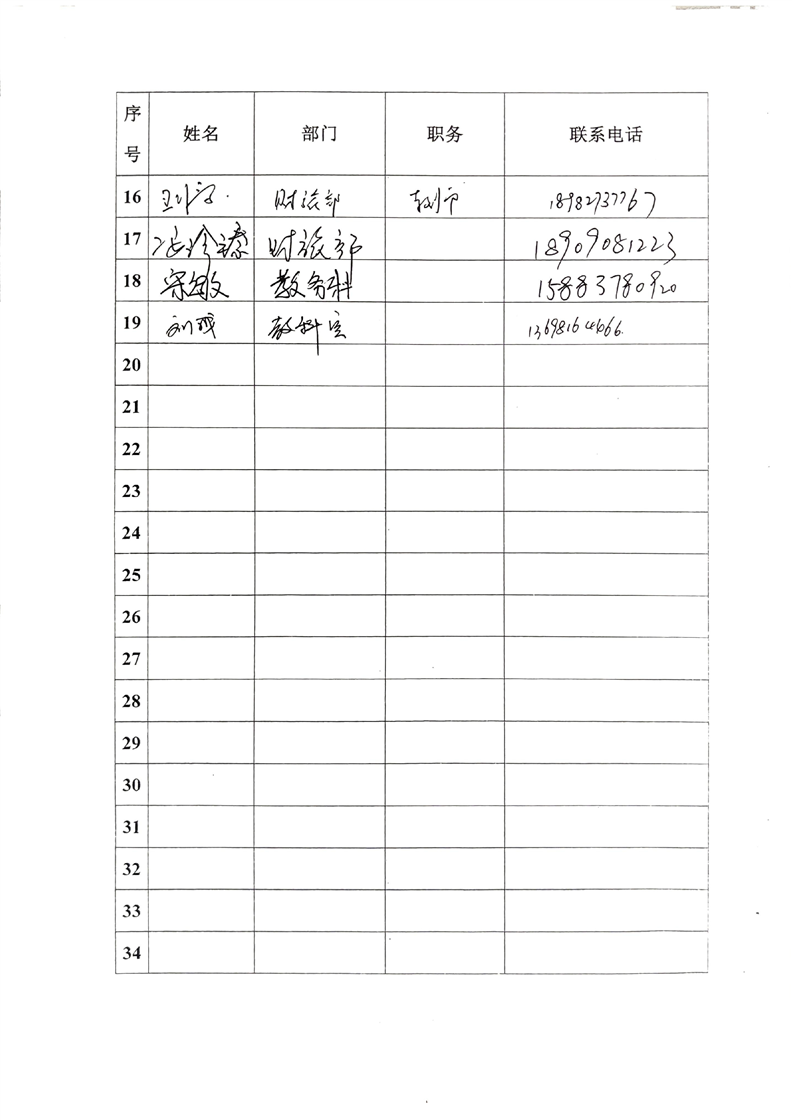 序号 姓名 部门 职务 联系电话
16 财政部 18982737767
17 财政部 18909081223
18 宋敏 教务科 15883780920
19 刘 教科室 13698164666.
20
21
22
23
24
25
26
27
28
29
30
31
32
33
34